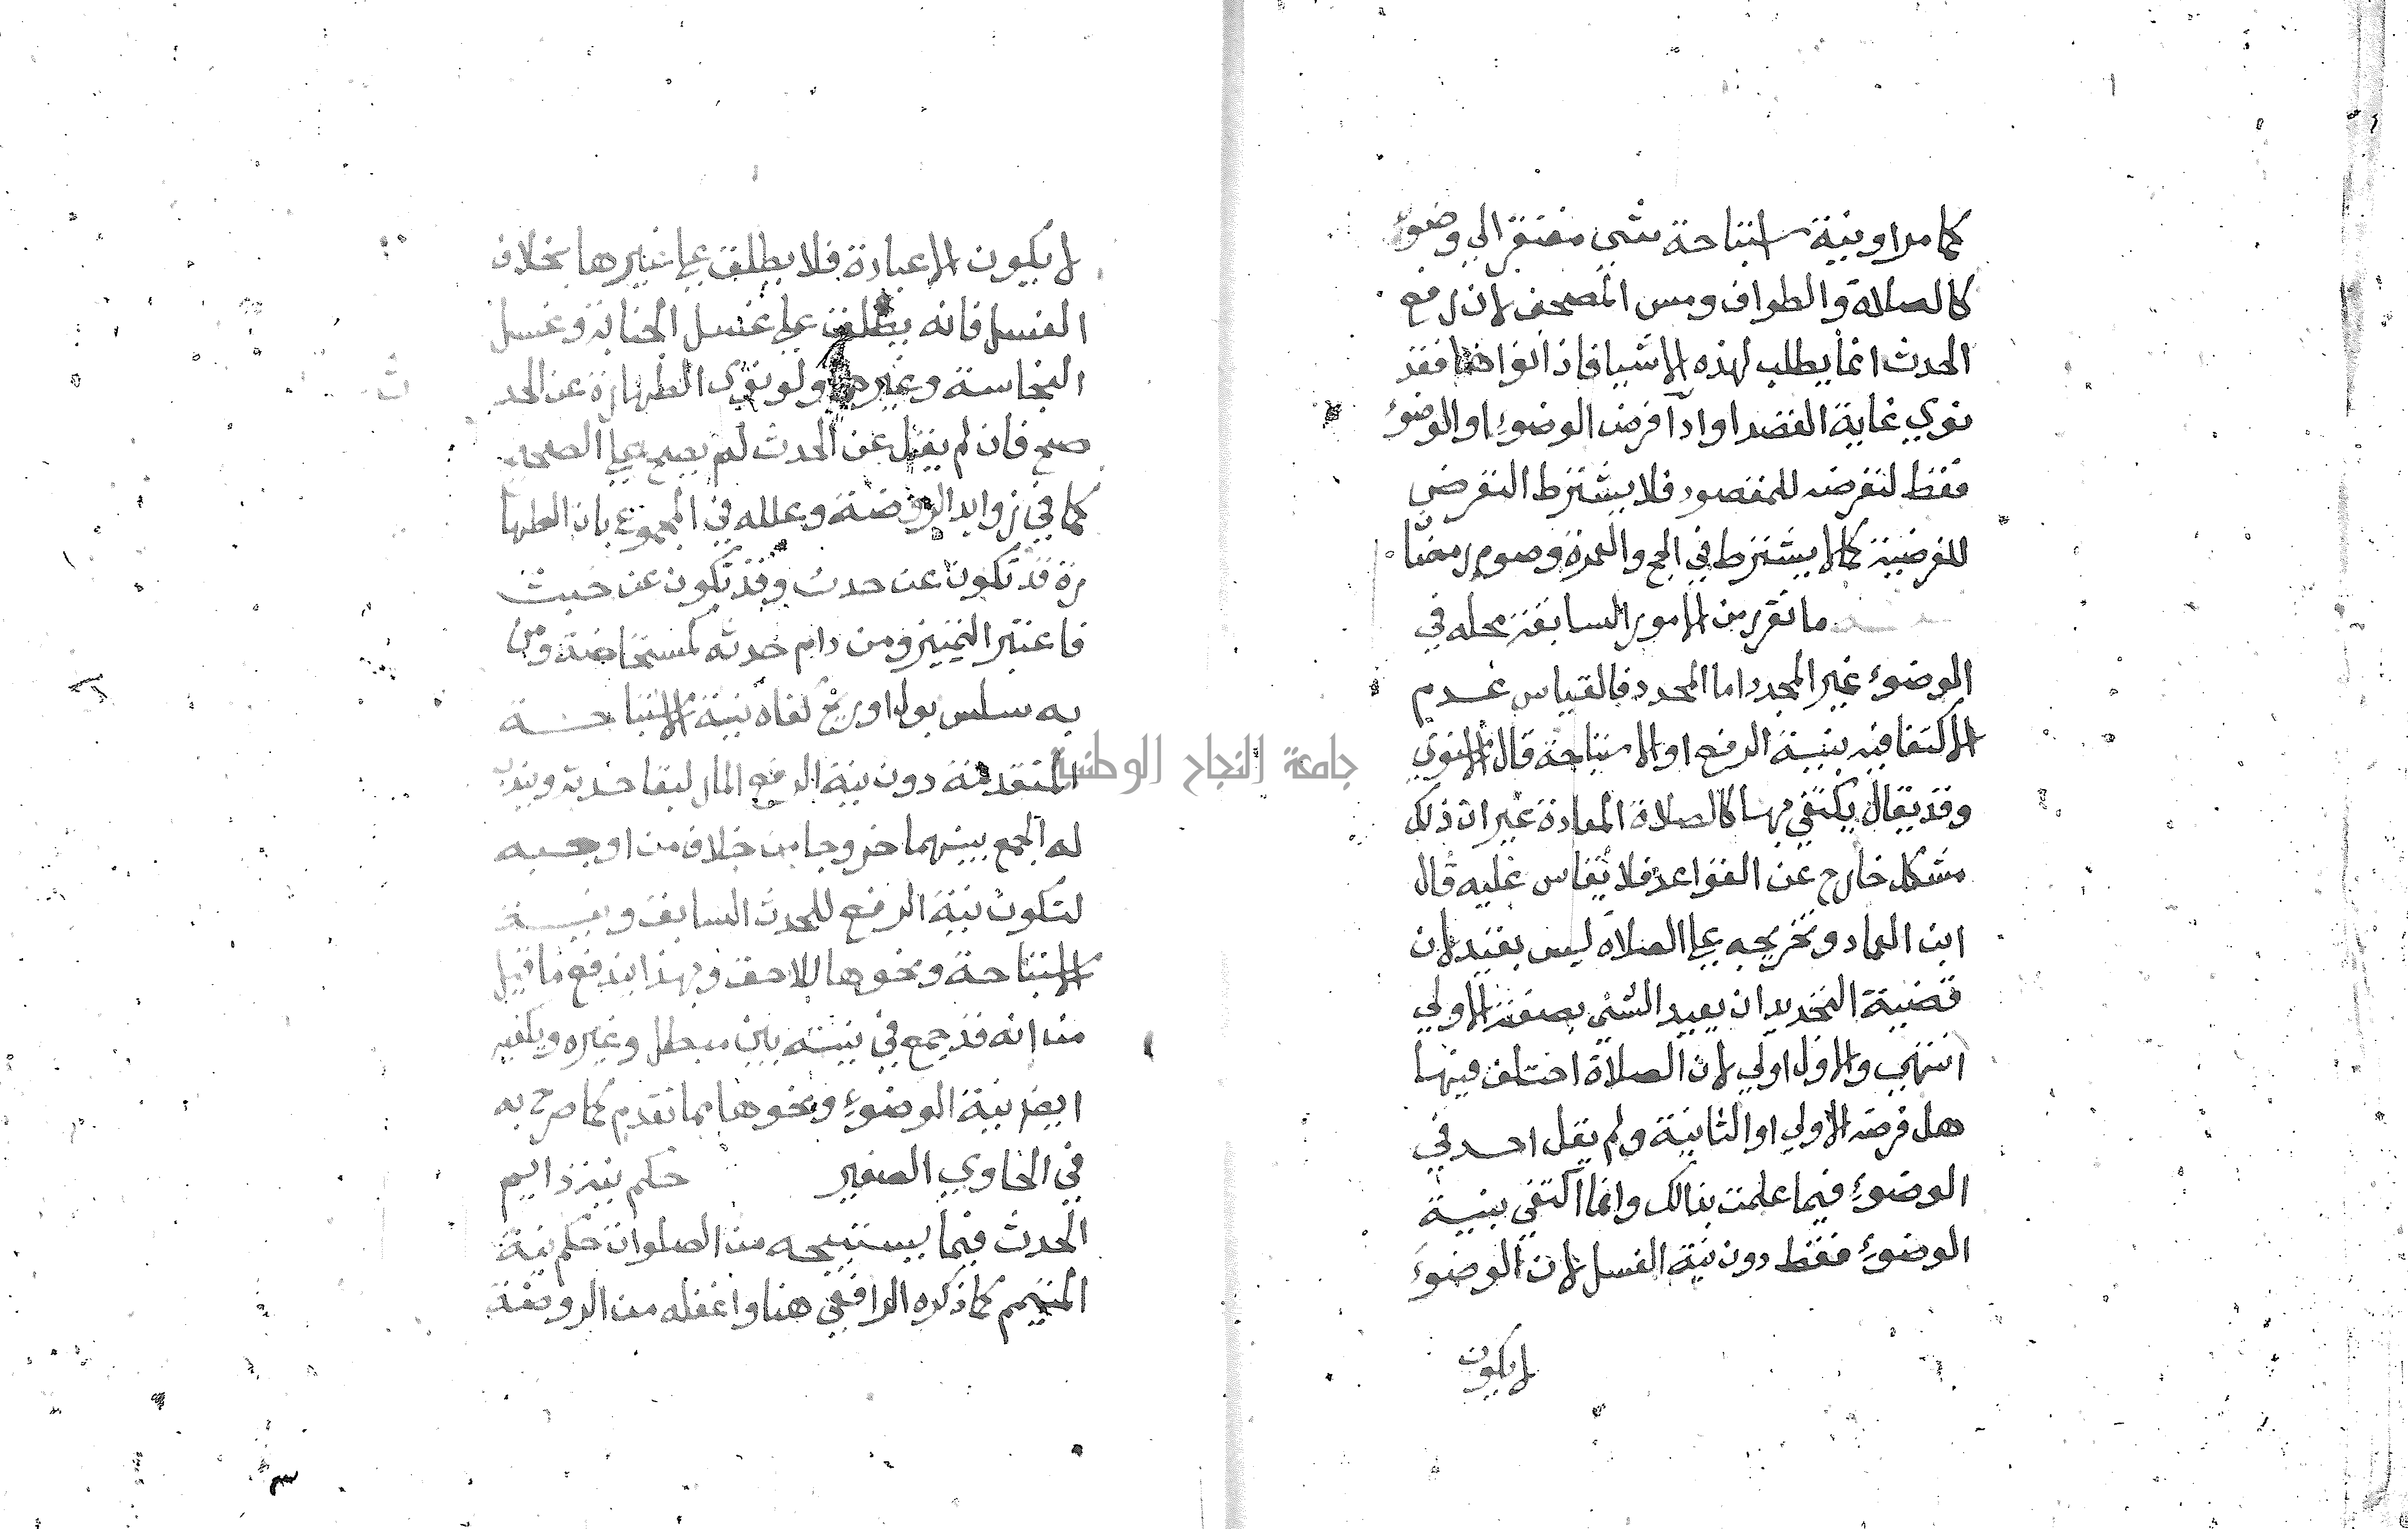 كما مر او بنية استباحة شي مفتقر الي وضوء
كالصلاة والطواف ومس المصحف لان رفع
الحدث انما يطلب لهذه الاشيا فاذا نواها فقد
نوي غاية القصد او ادآ فرض الوضوء او الوضوء
فقط لتعرضه للمقصود فلا يشترط التعرض
للفرضية كما لا يشترط في الحج والعمرة وصوم رمضان
ما تقرر من الامور السابقة محله في
الوضوء غير المجدد اما المجدد فالقياس عدم
الاكتفا فيه بنية الرفع او الاستباحة قال الاسنوي
وقد يقال يكتفي بها كالصلاة المعادة غير ان ذلك
مشكل خارج عن القواعد فلا يقاس عليه قال
ابن العماد وتخريجه علي الصلاة ليس ببعيد لان
قضية التجديد ان يعيد الشي بصفته الاولي
انتهي والاول اولي لان الصلاة اختلف فيها
هل فرضه الاولي او الثانية ولم يقل احد في
الوضوء فيما علمت بذالك وانما اكتفي بنية
الوضوء فقط دون نية الغسل لان الوضوء
لا يكون
لا يكون الا عبادة فلا يطلق علي غيرها بخلاف
الغسل فانه يطلق علي غسل الجنابة وغسل
النجاسة وغيرها ولو نوي الطهارة عن الحد
ث
صح فان لم يقل عن الحدث لم يصح علي الصحيح
كما في زوايد الروضة وعلله في المجموع بان الطها
رة قد تكون عن حدث وقد تكون عن خبث
فاعتبر التمييز ومن دام حدثه كمستحاضة ومن
به سلس بول او ريح كفاه نية الاستباحة
المتقدمة دون نية الرفع المار لبقا حدثه ويندب
له الجمع بينهما خروجا من خلاف من اوجبه
لتكون نية الرفع للحدث السابق ونية
الاستباحة ونحوها للاحق وبهذا يندفع ما قيل
من انه قد جمع في نيته بين مبطل وغيره ويكفيه
ايضا نية الوضوء ونحوها مما تقدم كما صرح به
في الحاوي الصغير حكم نية دايم
الحدث فيما يستبيحه من الصلوات حكم نية
المتيمم كما ذكره الرافعي هنا واغفله من الروضة
جامعة النجاح الوطنية